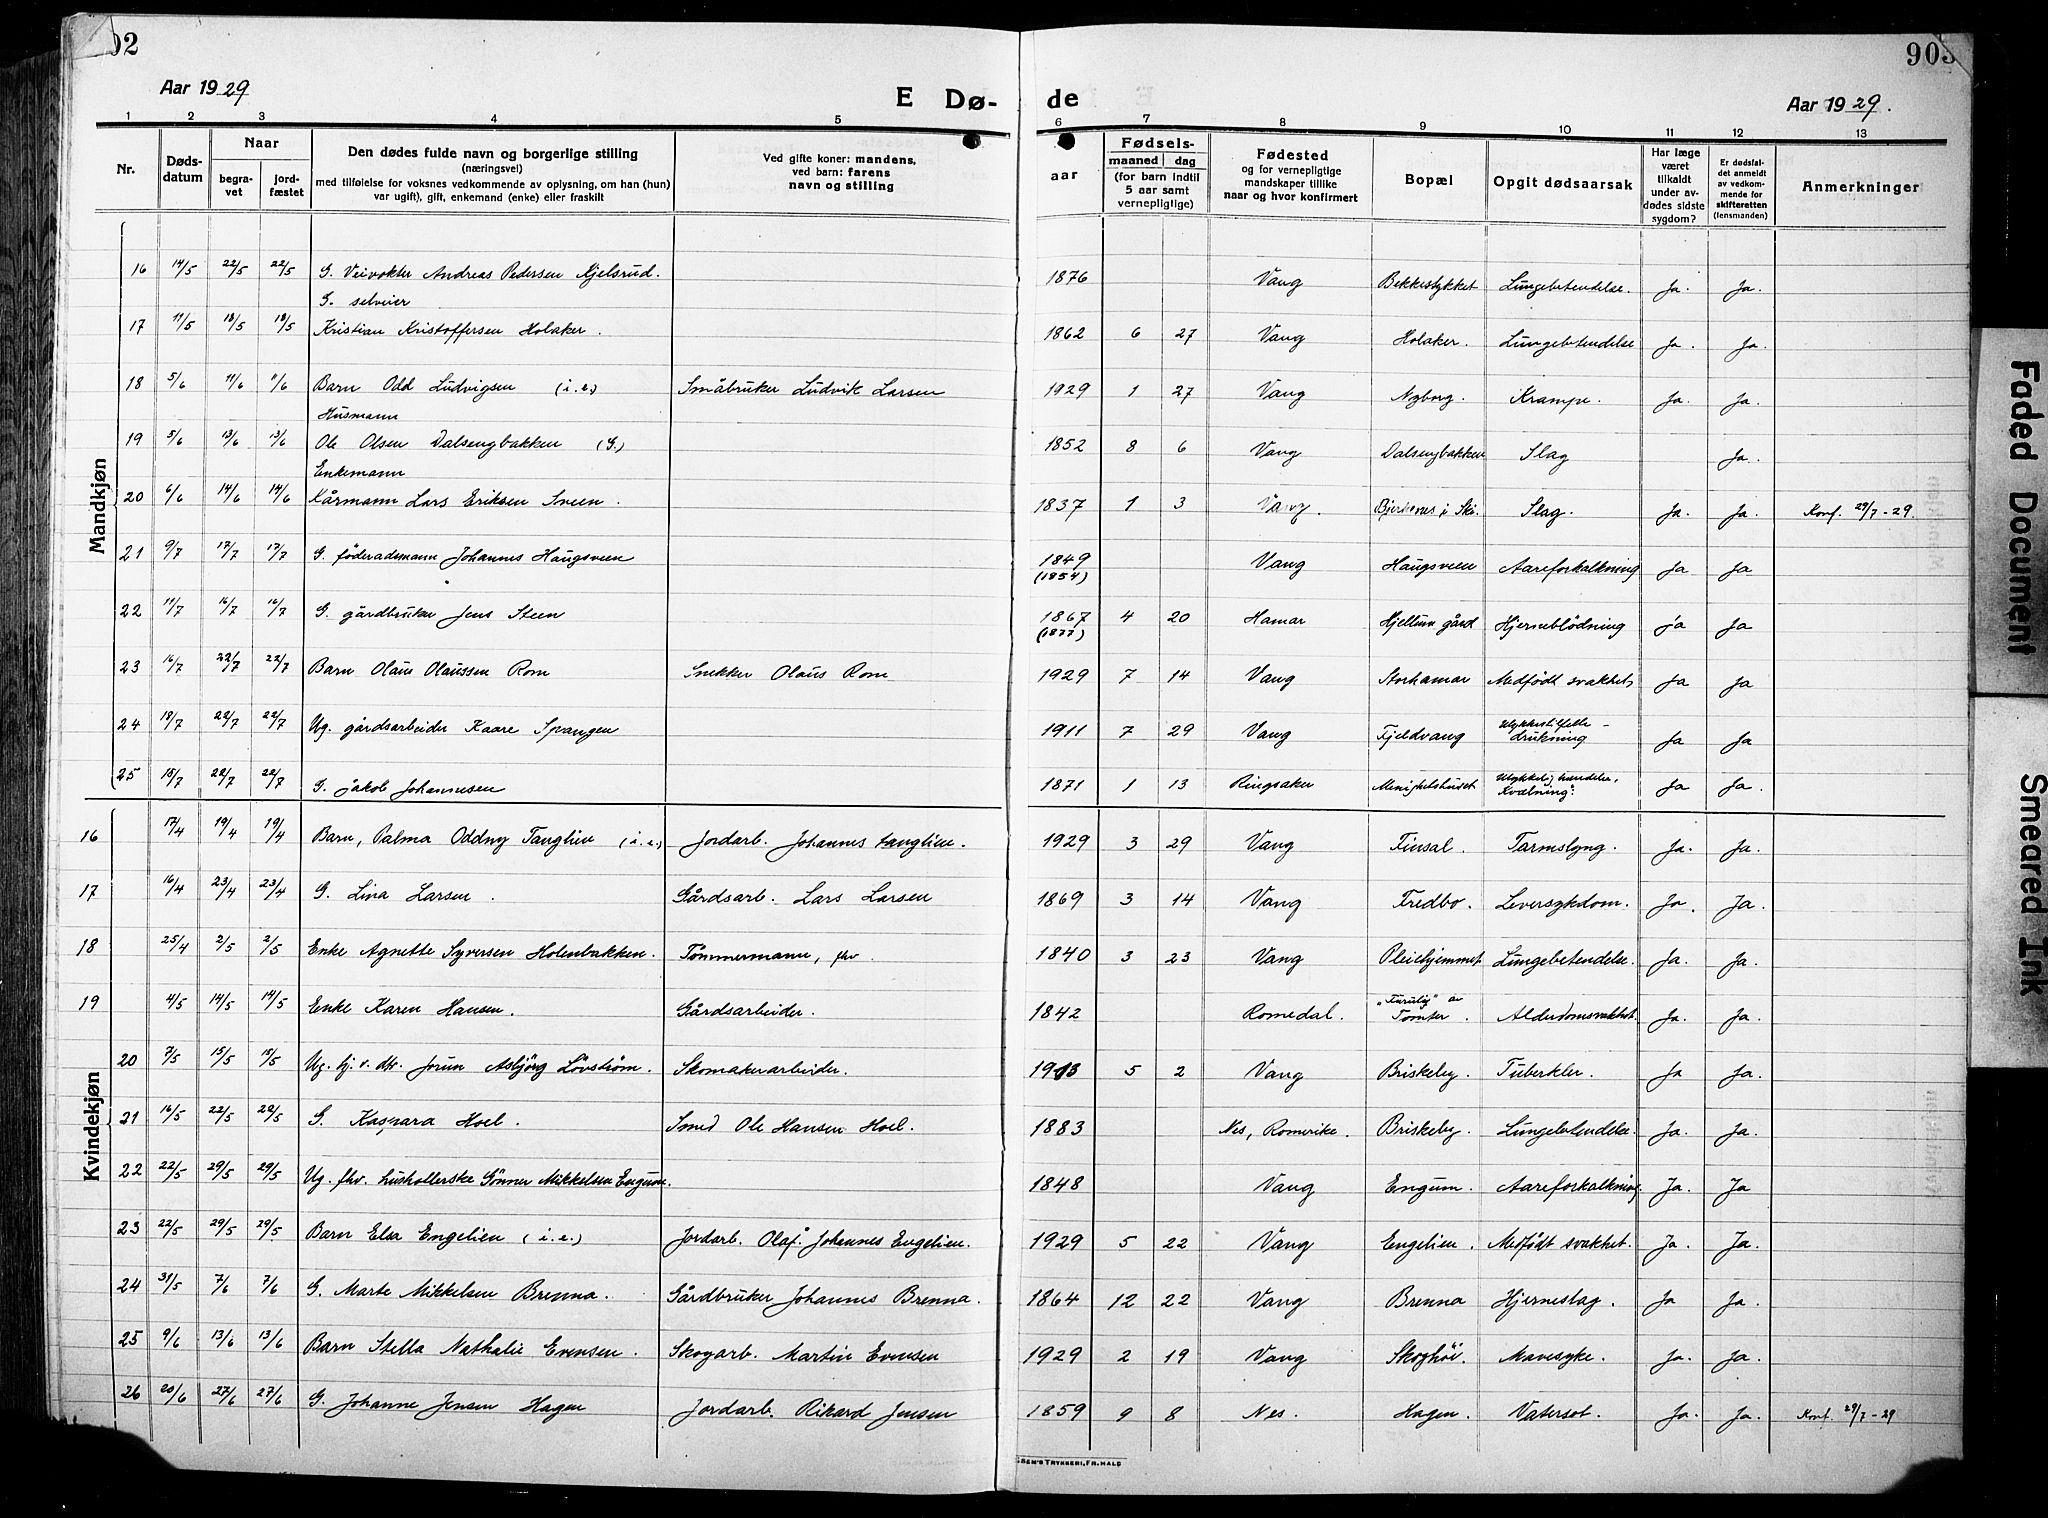 02
903
Aar 1929
E Dø-
de
Aar 1929.
1 2 3 4 5 6 7 8 9 10 11 12 13
Nr.
Døds-
datum
Naar
begra-
vet
jord-
fæstet
Den dødes fulde navn og borgerlige stilling
(næringsvei)
med tilføielse for voksnes vedkommende av oplysning, om han (hun)
var ugift), gift, enkemand (enke) eller fraskilt
Ved gifte koner: mandens,
ved barn: farens
navn og stilling
aar
Fødsels-
maaned dag
(for barn indtil
5 aar samt
vernepligtige)
Fødested
og for vernepligtige
mandskaper tillike
naar og hvor konfirmert
Bopæl
Opgit dødsaarsak
Har læge
været
tilkaldt
under av-
dødes sidste
sygdom?
Er dødsfal-
det anmeldt
av vedkom-
mende for
skifteretten
(lensmanden)
Anmerkninger
Mandkjøn
16 14/5 22/5 22/5 G. Veivokter Andreas Pedersen Kjelsrud. 1876 Vang Bekkestykket Lungebetendelse. Ja. Ja.
G. selveier
17 11/5 18/5 18/5 Kristian Kristoffersen Holaker. 1862 6 27 Vang Holaker. Lungebetendelse Ja. Ja.
18 5/6 11/6 11/6 Barn Odd Ludvigsen (i.e.) Småbruker Ludvik Larsen 1929 1 27 Vang Nyborg. Krampe. Ja. Ja.
Husmann
19 5/6 13/6 13/6 Ole Olsen Dalsengbakken (G.) 1852 8 6 Vang Dalsengbakken Slag Ja.
Enkemann
20 6/6 14/6 14/6 Kårmann Lars Eriksen Sveen. 1837 1 3 Vang. Slag. Ja. Ja. Konf. 29/7-29.
21 9/7 17/7 17/7 G. föderadsmann Johannes Haugsveen 1849 Vang Haugsveen Aareforkalkning Ja Ja
(1854)
22 11/7 16/7 16/7 G. gårdbruker Jens Steen 1867 4 20 Hamar Hjellum gård Hjerneblödning ja Ja
(1877)
23 16/7 22/7 22/7 Barn Olaus Olaussen Rom Snekker Olaus Rom 1929 7 14 Vang Storhamar Medfödt svakhet Ja Ja
24 19/7 22/7 22/7 Ug. gårdsarbeider Kaare Spangen 1911 7 29 Vang Fjeldvang Ulykkestilfelle - drukning Ja Ja
25 15/7 22/7 22/7 G. Jakob Johannesen 1871 1 13 Ringsaker Menighetshuset Ulykkelig hendelse, Kvælning. Ja Ja.
Kvindekjøn
16 17/4 19/4 19/4 Barn, Palma Oddny Tanglien (i.e.) Jordarb. Johannes Tanglien. 1929 3 29 Vang Finsal. Tarmslyng. Ja. Ja.
17 16/4 23/4 23/4 G. Lina Larsen. Gårdsarb. Lars Larsen 1869 3 14 Vang Fredbo. Leversykdom. Ja. Ja.
18 25/4 2/5 2/5 Enke Agnette Syversen Holenbakken. Tømmermann, fhv. 1840 3 23 Vang Pleiehjemmet Lungebetendelse. Ja. Ja.
19 4/5 14/5 14/5 Enke Karen Hansen. Gårdsarbeider. 1842 Romedal. "Furulig" av Tomter. Alderdomsvakhet. Ja. Ja.
20 7/5 15/5 15/5 Ug. hj. v. dtr. Jorun Asbjörg Lövström. Skomakerarbeider. 1913 5 2 Vang Briskeby. Tuberkler. Ja Ja.
21 16/5 22/5 22/5 G. Kaspara Hoel. Smed Ole Hansen Hoel. 1883 Nes, Romerike. Briskeby. Lungebetendelse. Ja. Ja.
22 22/5 29/5 29/5 Ug. fhv. husholderske Gönner Mikkelsen Engum. 1848 Vang Engum. Aareforkalkning. Ja. Ja
23 22/5 29/5 29/5 Barn Elsa Engelien (i.e.) Jordarb. Olaf Johannes Engelien. 1929 5 22 Vang Engelien. Medfödt svakhet. Ja. Ja.
24 31/5 7/6 7/6 G. Marte Mikkelsen Brenna. Gårdbruker Johannes Brenna. 1864 12 22 Vang Brenna Hjerneslag. Ja Ja.
25 9/6 13/6 13/6 Barn Stella Nathalie Evensen. Skogarb. Martin Evensen 1929 2 19 Vang Skoghöi. Mavesyke. Ja. Ja.
26 20/6 27/6 27/6 G. Johanne Jensen Hagen Jordarb. Rikard Jensen 1859 9 8 Nes. Hagen. Vatersot. Ja. Ja. Konf. 29/7-29
SEN'S TRYKKERI, FR.HALD
Faded Document
Smeared Ink